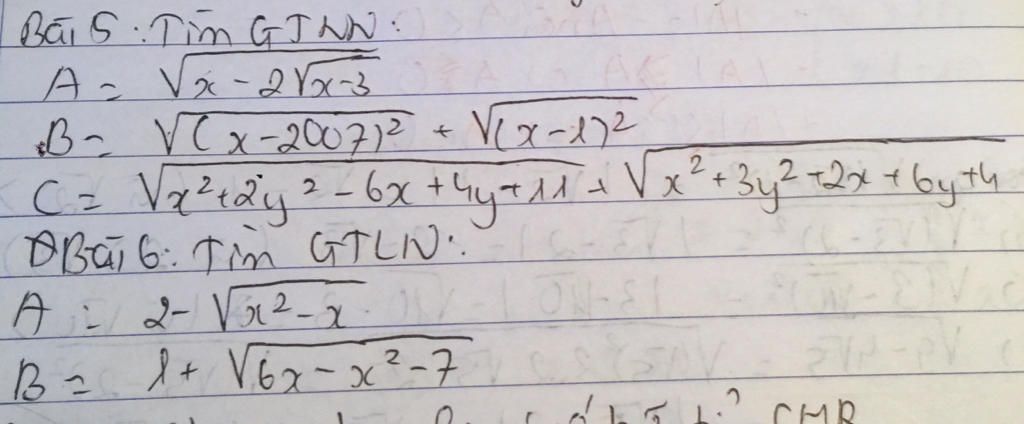 Bài 5: Tìm GTNN:
A = √(x - 2√(x-3))
B = √((x-2007)²) + √((x-1)²)
C = √(x²+2y²-6x+4y+11) + √(x²+3y²+2x+6y+4)
Bài 6: Tìm GTLN:
A = 2 - √(x²-x)
B = 1 + √(6x-x²-7)
CMR